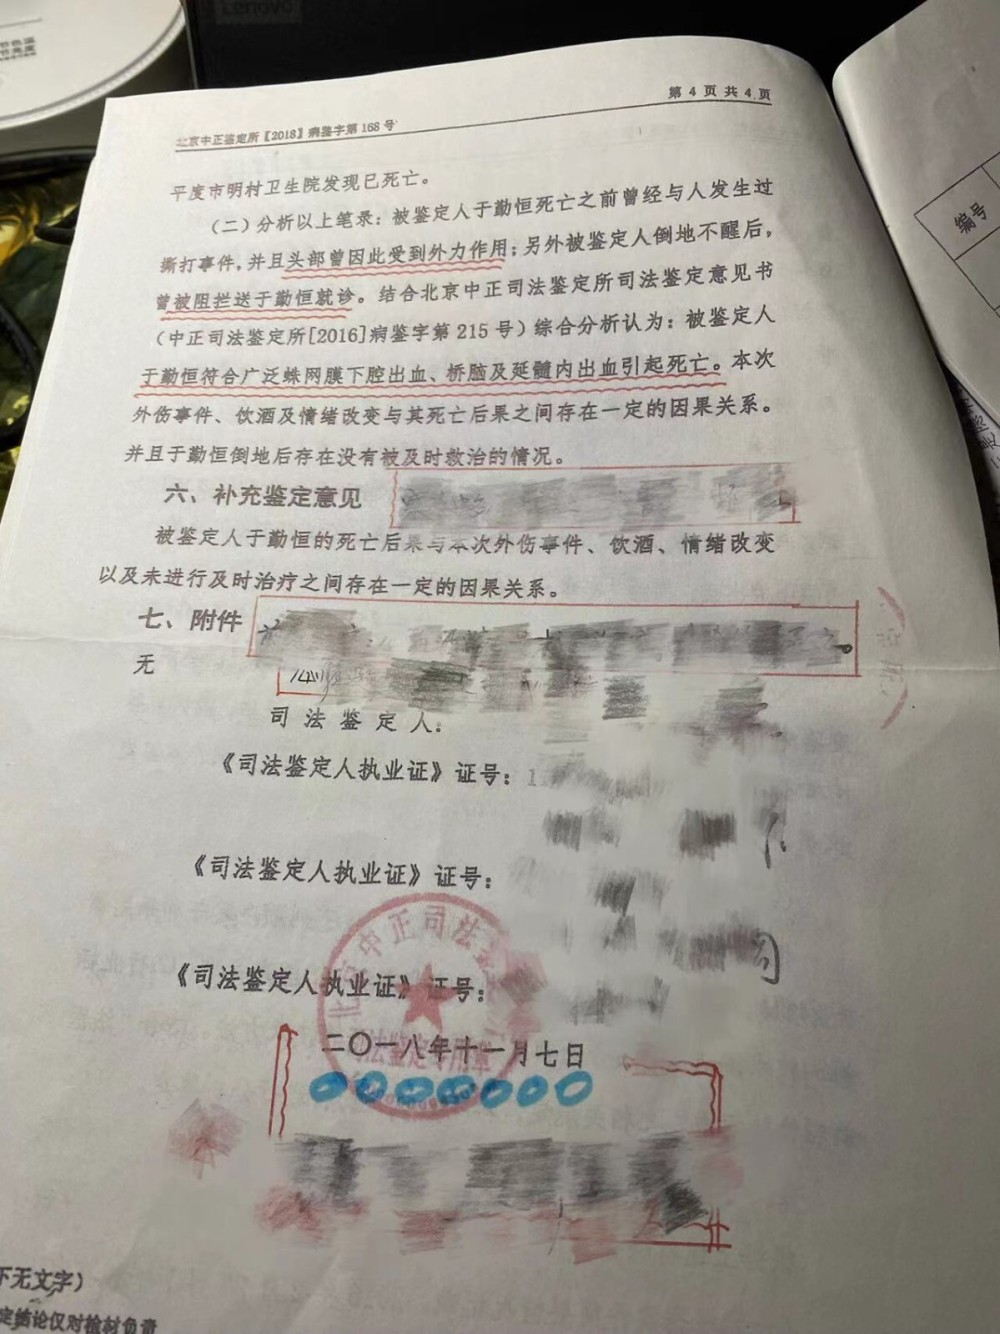 Lenovo
北京中正鉴定所【2018】病鉴字第 168 号
第 4 页 共 4 页
平度市明村卫生院发现已死亡。
（二）分析以上笔录：被鉴定人于勤恒死亡之前曾经与人发生过
撕打事件，并且头部曾因此受到外力作用；另外被鉴定人倒地不醒后，
曾被阻拦送于勤恒就诊。结合北京中正司法鉴定所司法鉴定意见书
（中正司法鉴定所[2016]病鉴字第 215 号）综合分析认为：被鉴定人
于勤恒符合广泛蛛网膜下腔出血、桥脑及延髓内出血引起死亡。本次
外伤事件、饮酒及情绪改变与其死亡后果之间存在一定的因果关系。
并且于勤恒倒地后存在没有被及时救治的情况。
六、补充鉴定意见
被鉴定人于勤恒的死亡后果与本次外伤事件、饮酒、情绪改变
以及未进行及时治疗之间存在一定的因果关系。
七、附件
无
司 法 鉴 定 人：
《司法鉴定人执业证》证号：
《司法鉴定人执业证》证号：
《司法鉴定人执业证》证号：
中正司法
司法鉴定专用章
二〇一八年十一月七日
下无文字）
定结论仅对检材负责
编号